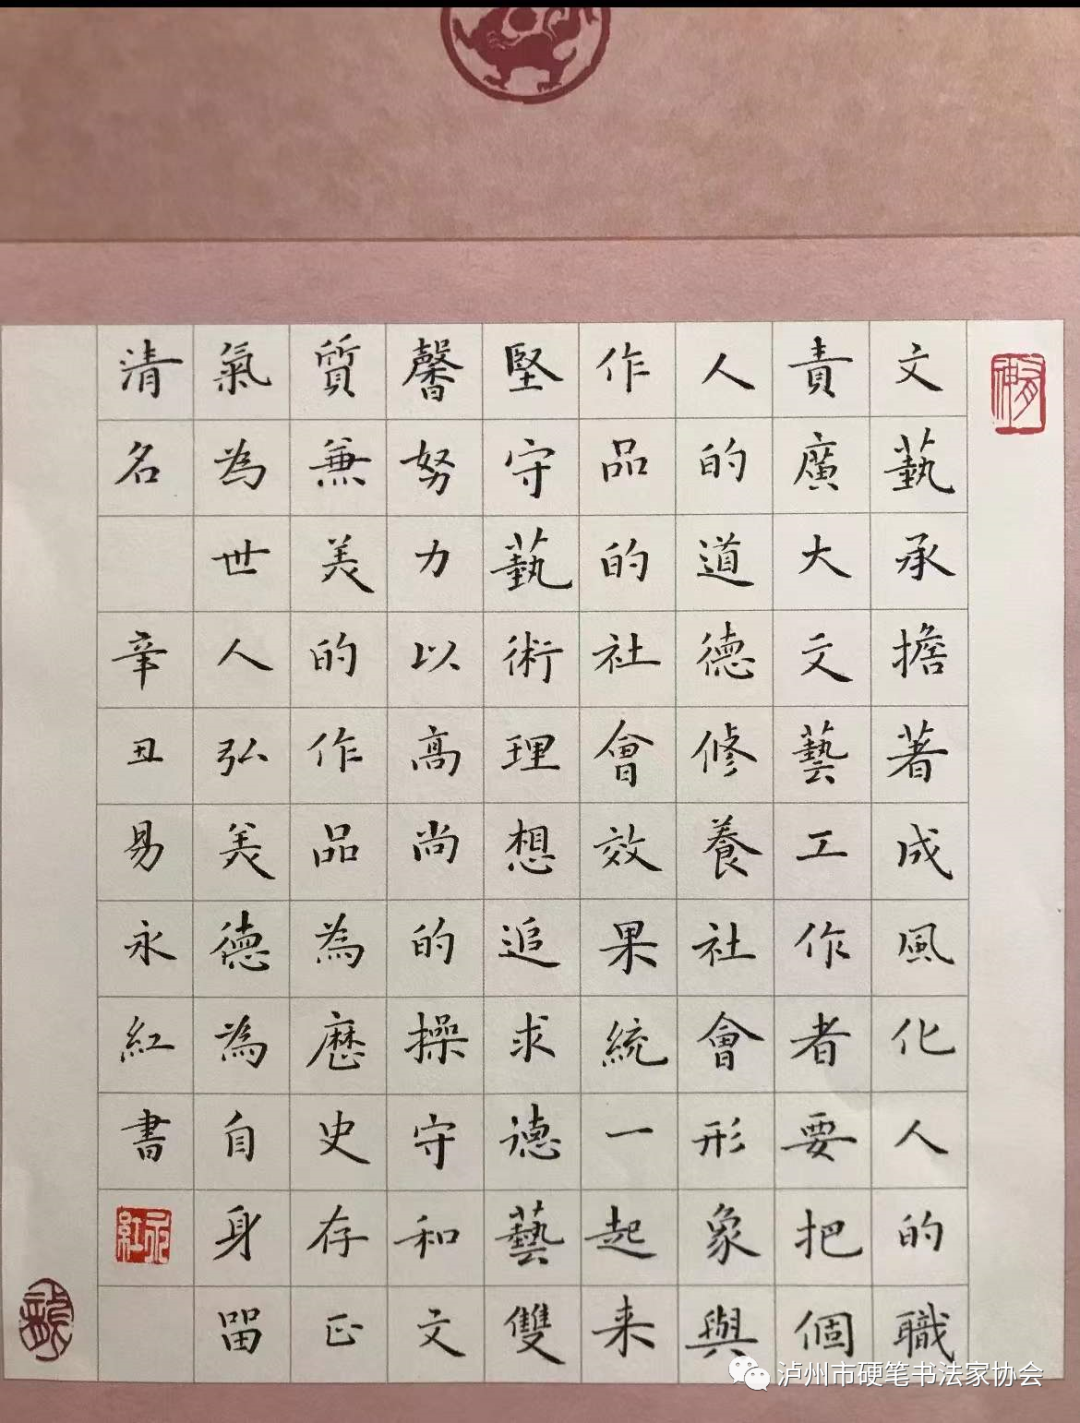 文藝承擔著成風化人的職
責廣大文藝工作者要把個
人的道德修養社會形象與
作品的社會效果統一起来
堅守藝術理想追求德藝雙
馨努力以高尚的操守和文
質兼美的作品為歷史存正
氣為世人弘美德為自身留
清名 辛丑易永紅書
永紅
泸州市硬笔书法家协会